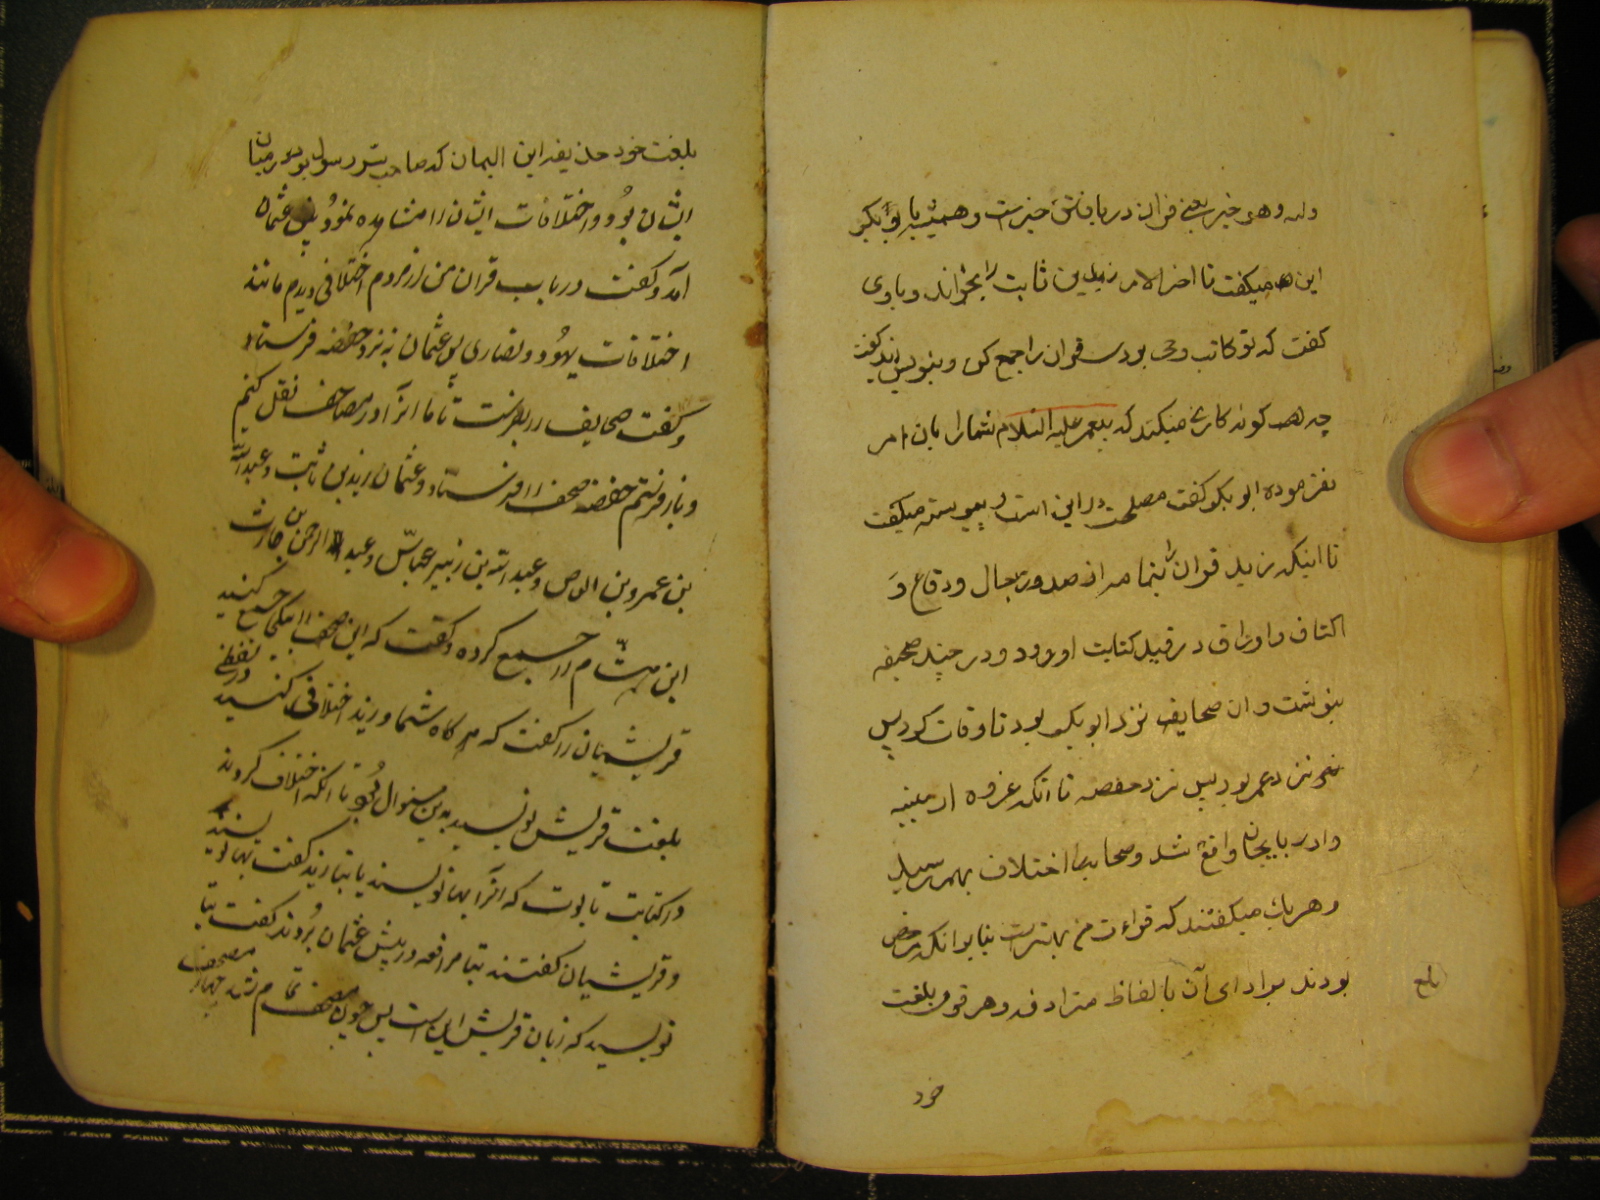 وهو خیر یعنی قران دریافتن خیرست و همیشه با بوبکر
این همیکفت تا اخر الامر زیدبن ثابت را بخواند و باوی
کفت که تو کاتب وحی بودی قران را جمع کن و بنویس زید کفت
چه کونه کاری میکنید که پیغمبر علیه السلام شما را بان امر
نفرموده ابو بکر کفت مصلحت در این است و پیوسته میکفت
تا اینکه زید قران را بتمامه از صدور رجال و رقاع و
اکتاف و اوراق در قید کتابت اورود و در چند صحیفه
بنوشت و ان صحایف نزد ابو بکر بود تا وفات کرد پس
نزد عمر بود پس نزد حفصه تا انکه غزوه ارمینیه
و ادربایجان واقع شد و صحابه را اختلاف بهم رسید
و هریک میکفتند که قراءت من بهترست بنا بر انکه مرخص
بودند بر ادای آن بالفاظ مترادفه و هر قوم بلغت
بلغ
خود
بلغت خود حذیفه ابن الیمان که صاحب سر رسول بود در میان
ایشان بود و اختلافات ایشان را مشاهده نمود پس عثمان
آمد و کفت در باب قران من از مردم اختلافی دیدم مانند
اختلافات یهود و نصاری پس عثمان به نزد حفصه فرستاد
و کفت صحایف را بفرست تا ما انرا در مصاحف نقل کنیم
و باز فرستیم حفصه صحف را فرستاد و عثمان زید بن ثابت و عبدالله
بن عمرو بن العاص و عبد الله بن زبیر و عباس و عبد الرحمن بن حارث
ابن هشام را جمع کرده و کفت که این صحف را یکجا جمع کنید
قریشیان را کفت که هر کاه شما و زید اختلافی کنید در لفظی
بلغت قریش نویسید به این منوال بود تا انکه اختلاف کردند
در کتابت تابوت که انرا بها نویسند یا بتا زید کفت بها نویسند
و قریشیان کفتند بتا مرافعه در پیش عثمان بردند کفت بتا
نویسید که زبان قریش این است پس چون مصحف تمام شد چهار مصحف